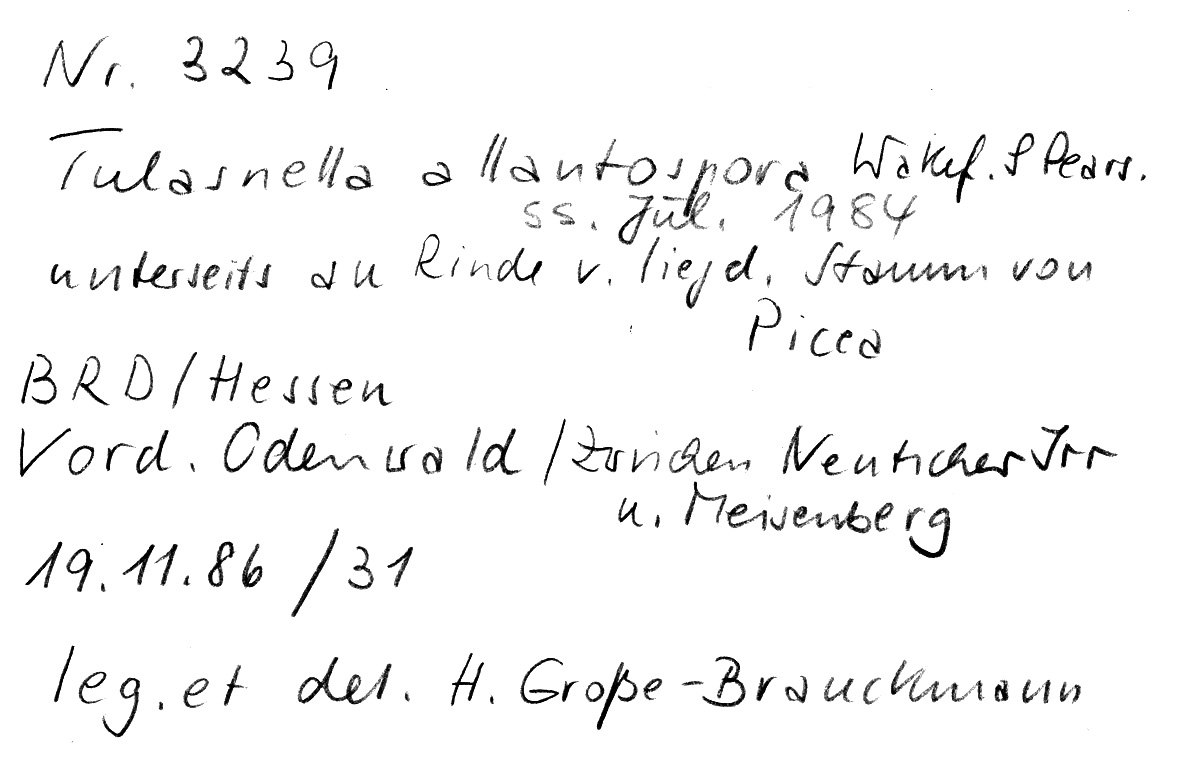 Nr. 3239
Tulasnella allantospora Wakef. & Pears.
ss. Jül. 1984
unterseits an Rinde v. liegd. Stamm von
Picea
BRD/Hessen
Vord. Odenwald/zwischen Neutscher Irr
u. Meisenberg
19.11.86 /31
leg. et det. H. Große-Brauckmann